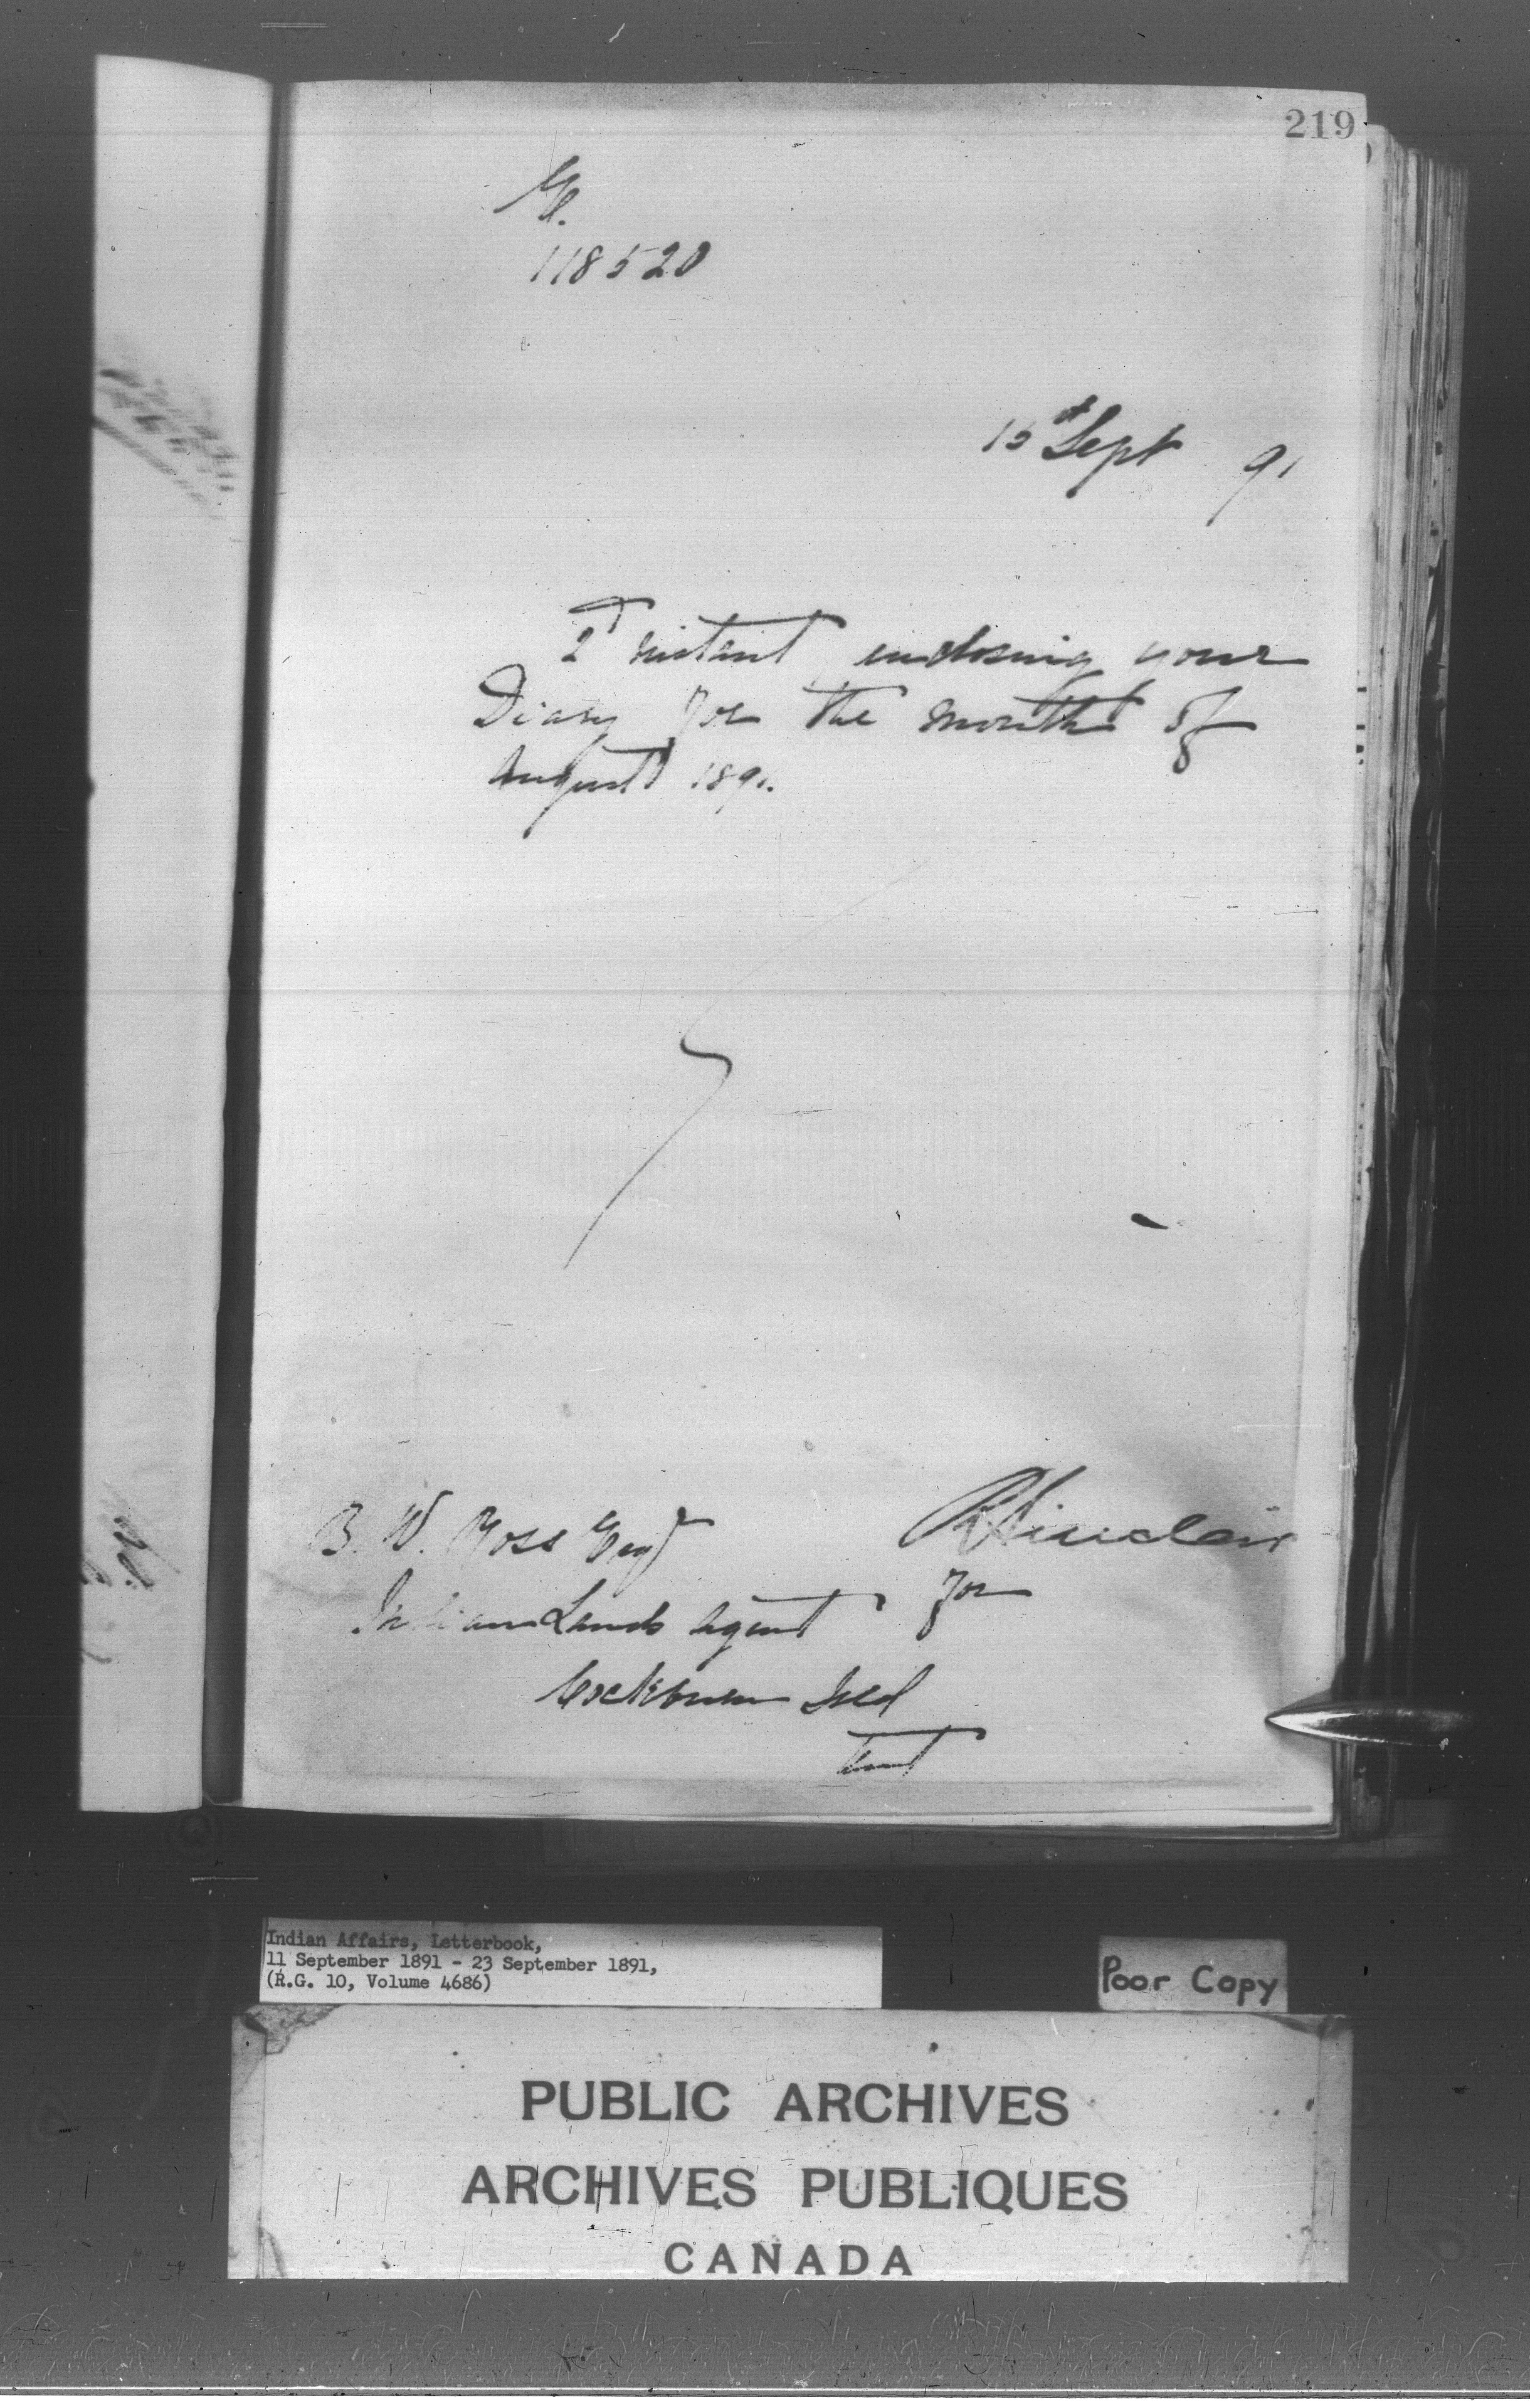 219
118520
15th Sept 91
2d instant enclosing your
Diary for the month of
August 1891.
B. W. Ross Esq
R Sinclair
Indian Lands Agent for
Cockburn Isld
Ont
Indian Affairs, Letterbook,
11 September 1891 - 23 September 1891,
(R.G. 10, Volume 4686)
Poor Copy
PUBLIC ARCHIVES
ARCHIVES PUBLIQUES
CANADA